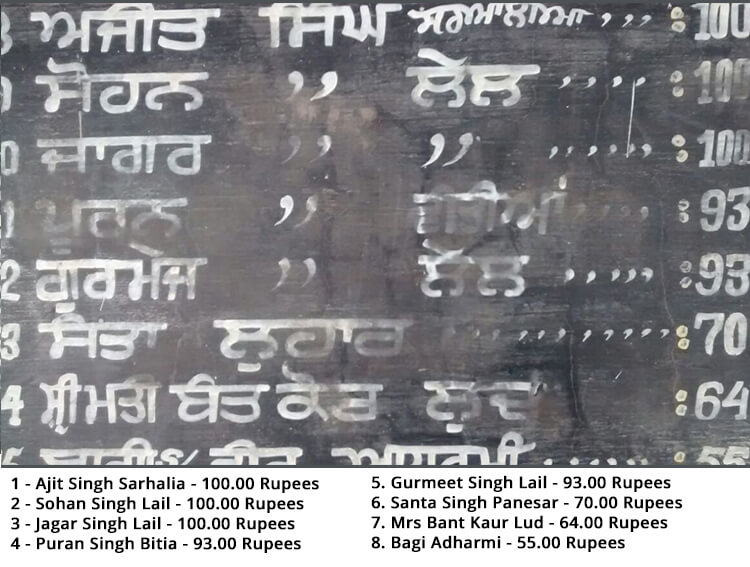 ਅਜੀਤ ਸਿੰਘ ਸਰਆਲੀਆ ,,, : 100
ਸੋਹਨ ,, ਲੇਲ ,,,, : 100
0 ਜਾਗਰ ,, ,, ,,,,,, : 100
ਪੂਰਨ ,, ,,,,, : 93
2 ਗੁਰਮੇਜ ,, ਲੇਲ ,,,,, : 93
3 ਸੰਤਾ ਲੁਹਾਰ ,,,,,,,,,, : 70
4 ਸ਼੍ਰੀਮਤੀ ਬੰਤ ਕੌਰ ਲੁਦ : 64
55
1 - Ajit Singh Sarhalia - 100.00 Rupees
2 - Sohan Singh Lail - 100.00 Rupees
3 - Jagar Singh Lail - 100.00 Rupees
4 - Puran Singh Bitia - 93.00 Rupees
5. Gurmeet Singh Lail - 93.00 Rupees
6. Santa Singh Panesar - 70.00 Rupees
7. Mrs Bant Kaur Lud - 64.00 Rupees
8. Bagi Adharmi - 55.00 Rupees